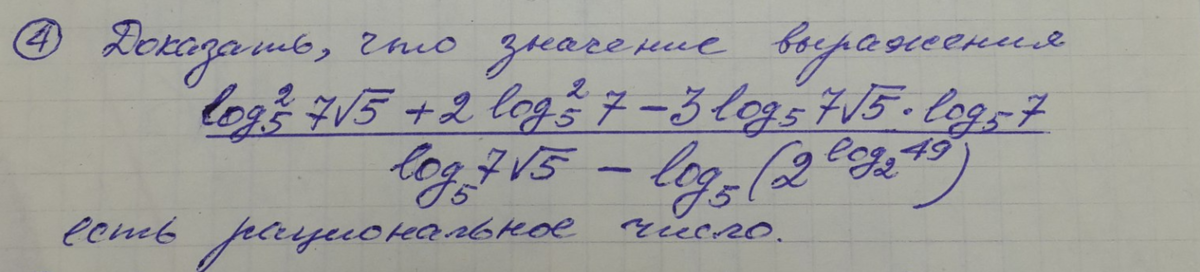 ④ Доказать, что значение выражения
log₅² 7√5 + 2 log₅² 7 − 3 log₅ 7√5 · log₅ 7
log₅ 7√5 − log₅ (2^log₂ 49)
есть рациональное число.